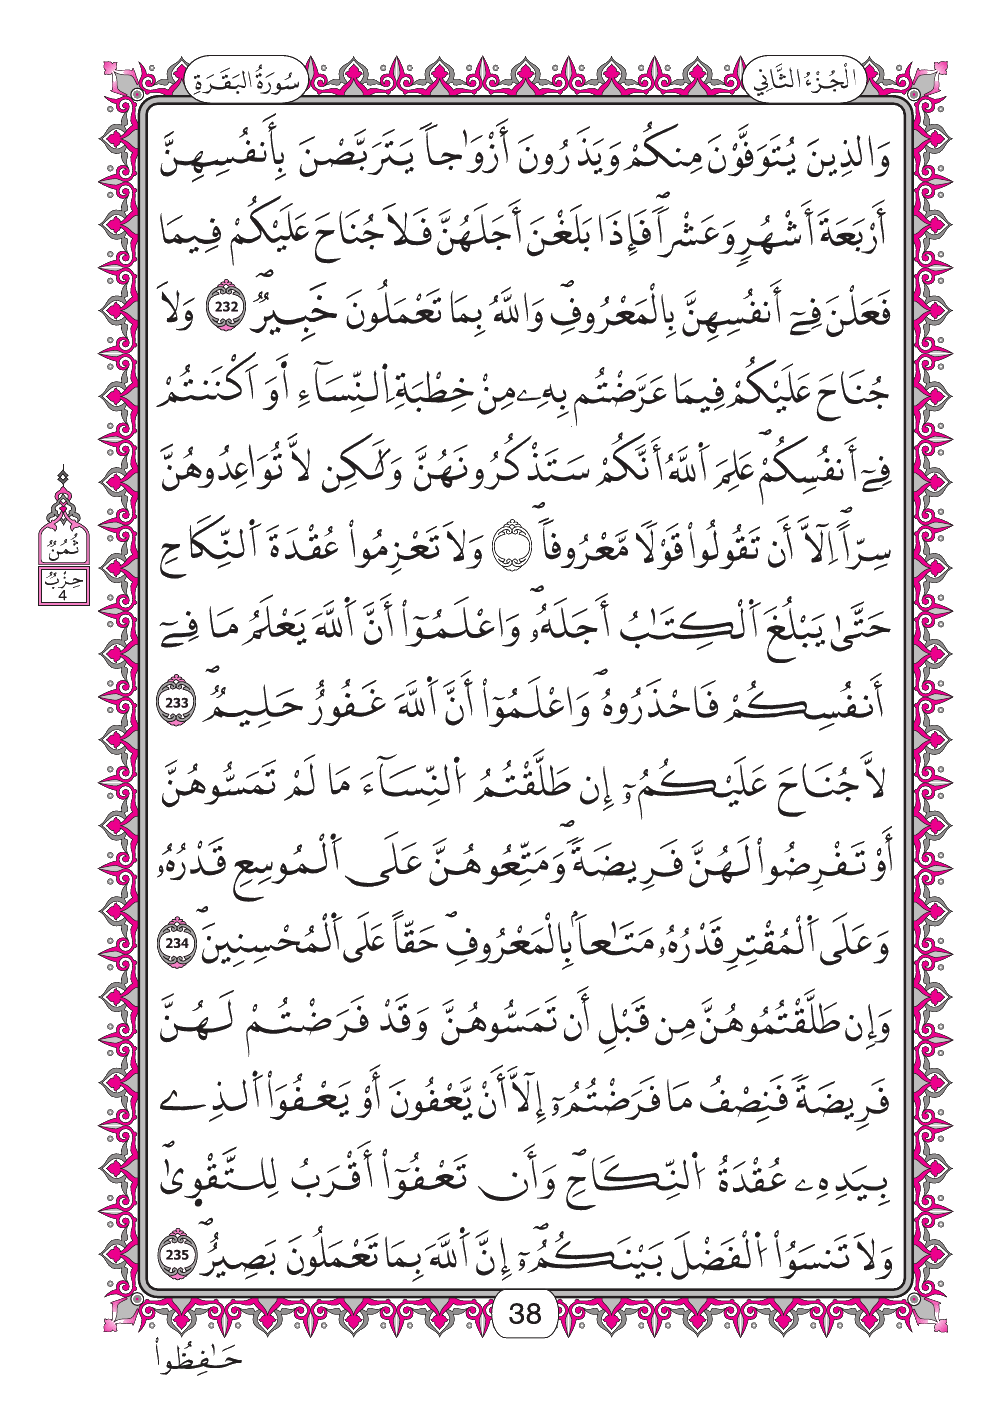 الْجُزْءُ الثَّانِي
سُورَةُ الْبَقَرَةِ
وَالذِينَ يُتَوَفَّوْنَ مِنكُمْ وَيَذَرُونَ أَزْوَٰجاٗ يَتَرَبَّصْنَ بِأَنفُسِهِنَّ
أَرْبَعَةَ أَشْهُرٖ وَعَشْراٗۖ فَإِذَا بَلَغْنَ أَجَلَهُنَّ فَلَا جُنَاحَ عَلَيْكُمْ فِيمَا
فَعَلْنَ فِےٓ أَنفُسِهِنَّ بِالْمَعْرُوفِۖ وَاللَّهُ بِمَا تَعْمَلُونَ خَبِيرٞۖ 232 وَلَا
جُنَاحَ عَلَيْكُمْ فِيمَا عَرَّضْتُم بِهِۦ مِنْ خِطْبَةِ اِ۬لنِّسَآءِ اَ۬وَ اَكْنَنتُمْ
فِےٓ أَنفُسِكُمْۖ عَلِمَ اَ۬للَّهُ أَنَّكُمْ سَتَذْكُرُونَهُنَّ وَلَٰكِن لَّا تُوَاعِدُوهُنَّ
سِرّاًۖ اِلَّآ أَن تَقُولُواْ قَوْلاٗ مَّعْرُوفاٗۖ وَلَا تَعْزِمُواْ عُقْدَةَ اَ۬لنِّكَاحِ
حَتَّىٰ يَبْلُغَ اَ۬لْكِتَٰبُ أَجَلَهُۥۖ وَاعْلَمُوٓاْ أَنَّ اَ۬للَّهَ يَعْلَمُ مَا فِےٓ
أَنفُسِكُمْ فَاحْذَرُوهُۖ وَاعْلَمُوٓاْ أَنَّ اَ۬للَّهَ غَفُورٌ حَلِيمٞۖ 233
لَّا جُنَاحَ عَلَيْكُمُۥٓ إِن طَلَّقْتُمُ اُ۬لنِّسَآءَ مَا لَمْ تَمَسُّوهُنَّ
أَوْ تَفْرِضُواْ لَهُنَّ فَرِيضَةٗۖ وَمَتِّعُوهُنَّ عَلَى اَ۬لْمُوسِعِ قَدْرُهُۥ
وَعَلَى اَ۬لْمُقْتِرِ قَدْرُهُۥ مَتَٰعاَۢ بِالْمَعْرُوفِۖ حَقّاً عَلَى اَ۬لْمُحْسِنِينَۖ 234
وَإِن طَلَّقْتُمُوهُنَّ مِن قَبْلِ أَن تَمَسُّوهُنَّ وَقَدْ فَرَضْتُمْ لَهُنَّ
فَرِيضَةٗ فَنِصْفُ مَا فَرَضْتُمُۥٓ إِلَّآ أَنْ يَّعْفُونَ أَوْ يَعْفُوَاْ اَ۬لذِے
بِيَدِهِۦ عُقْدَةُ اُ۬لنِّكَاحِۖ وَأَن تَعْفُوٓاْ أَقْرَبُ لِلتَّقْو۪ىٰۖ
وَلَا تَنسَوُاْ اُ۬لْفَضْلَ بَيْنَكُمُۥٓۖ إِنَّ اَ۬للَّهَ بِمَا تَعْمَلُونَ بَصِيرٌۖ 235
ثُمُنٌ
حِزْبٌ
4
38
حَٰفِظُواْ